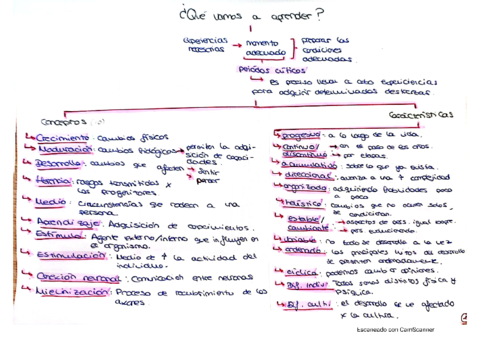 ¿Qué vamos a aprender?
experiencias necesarias → momento adecuado → preparar las condiciones adecuadas
periodos críticos
↳ es preciso llevar a cabo experiencias
para adquirir determinadas destrezas
Conceptos
Crecimiento: cambios físicos
Maduración: cambios biológicos → permiten la adquisición de capacidades.
Desarrollo: cambios que afectan → sentir
pensar
Herencia: rasgos transmitidos x
los progenitores
Medio: circunstancias que rodean a una
persona.
Aprendizaje: Adquisición de conocimientos.
Estímulo: Agente externo/interno que influye en
el organismo.
Estimulación: Medio de ↑ la actividad del
individuo.
Conexión neuronal: Comunicación entre neuronas
Mielinización: Proceso de recubrimiento de los
axones
Características
progresivo: a lo largo de la vida.
continuo/ en el paso de los años.
discontinuo por etapas.
acumulativo: sobre lo que ya existe.
direccional: avanza a una + complejidad
organizado: adquiriendo habilidades poco
a poco
holístico: cambios que no caven solos
se condicionan.
estable/ → aspectos de pers. igual
cambiante → pers. evolucionando.
variable: no todo se desarrolla a la vez
ordenado: las principales
se ordenadamente.
cíclica: podemos cambiar opiniones.
Dif. indiv: Todos somos distintos física y
psíquica.
Dif. cultu: el desarrollo se ve afectado
x la cultura.
Escaneado con CamScanner